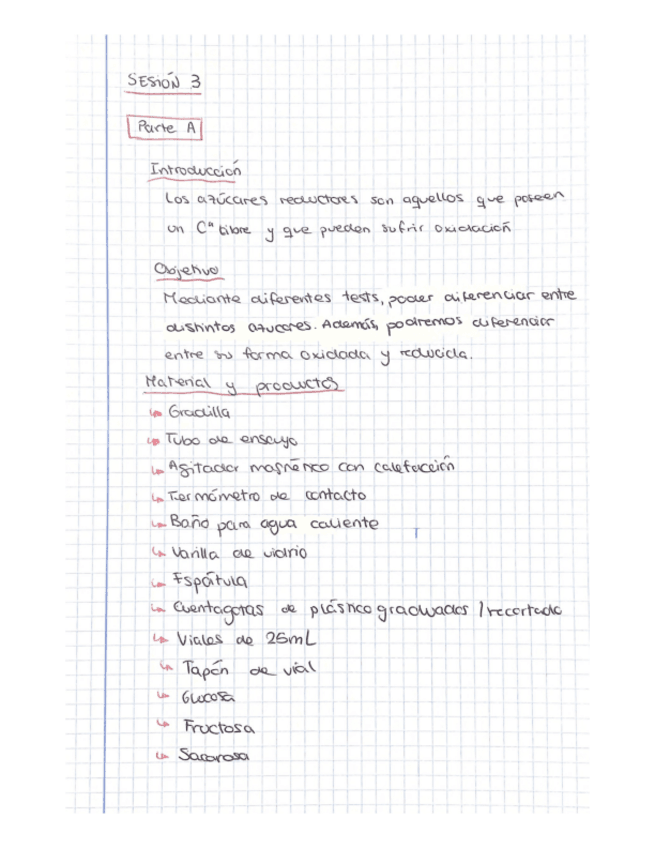 SESIÓN 3
Parte A
Introducción
Los azúcares reductores son aquellos que poseen
un Cª libre y que pueden sufrir oxidación
Objetivo
Mediante diferentes tests, poder diferenciar entre
distintos azucares. Además, podremos diferenciar
entre su forma oxidada y reducida.
Material y productos
↳ Gradilla
↳ Tubo de ensayo
↳ Agitador magnético con calefacción
↳ Termómetro de contacto
↳ Baño para agua caliente
↳ Varilla de vidrio
↳ Espátula
↳ Cuentagotas de plástico graduados / recortado
↳ Viales de 25mL
↳ Tapón de vial
↳ Glucosa
↳ Fructosa
↳ Sacarosa